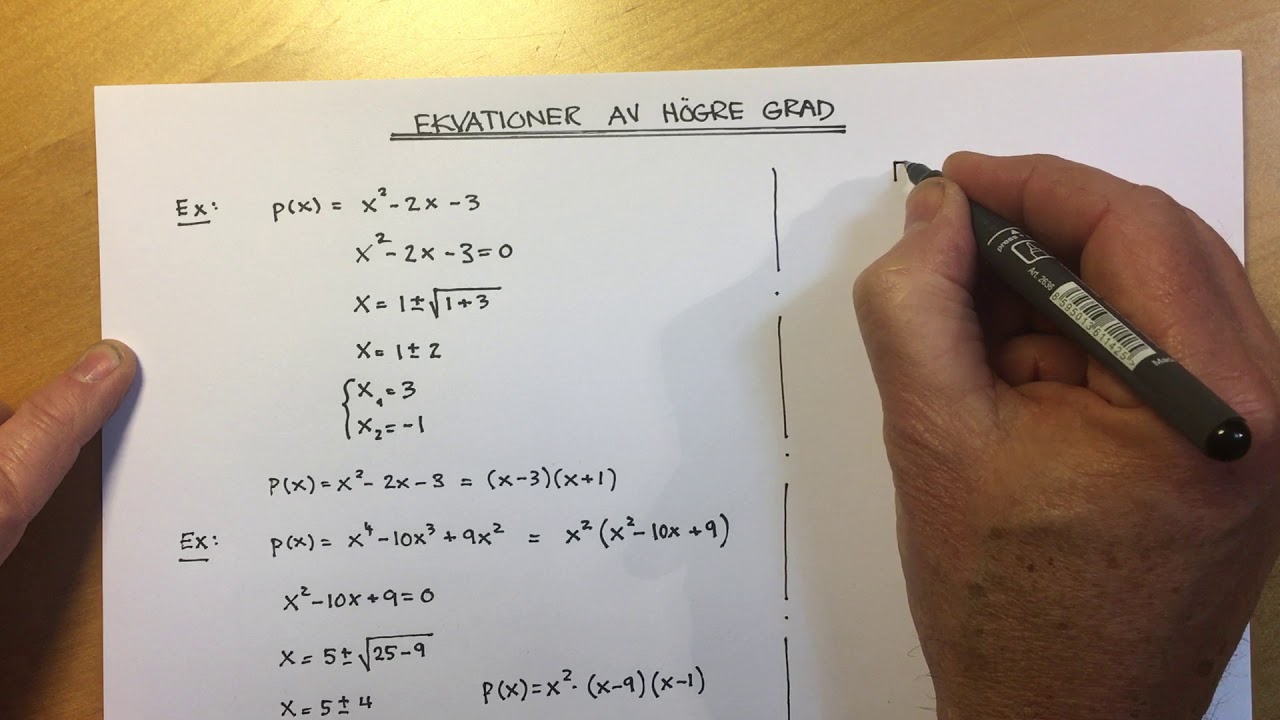 EKVATIONER AV HÖGRE GRAD
Ex: p(x) = x² - 2x - 3
x² - 2x - 3 = 0
x = 1 ± √(1 + 3)
x = 1 ± 2
{ x₁ = 3
x₂ = -1
p(x) = x² - 2x - 3 = (x-3)(x+1)
Ex: p(x) = x⁴ - 10x³ + 9x² = x² (x² - 10x + 9)
x² - 10x + 9 = 0
x = 5 ± √(25 - 9)
x = 5 ± 4
p(x) = x² · (x-9)(x-1)
Art. 2636
8595013611425